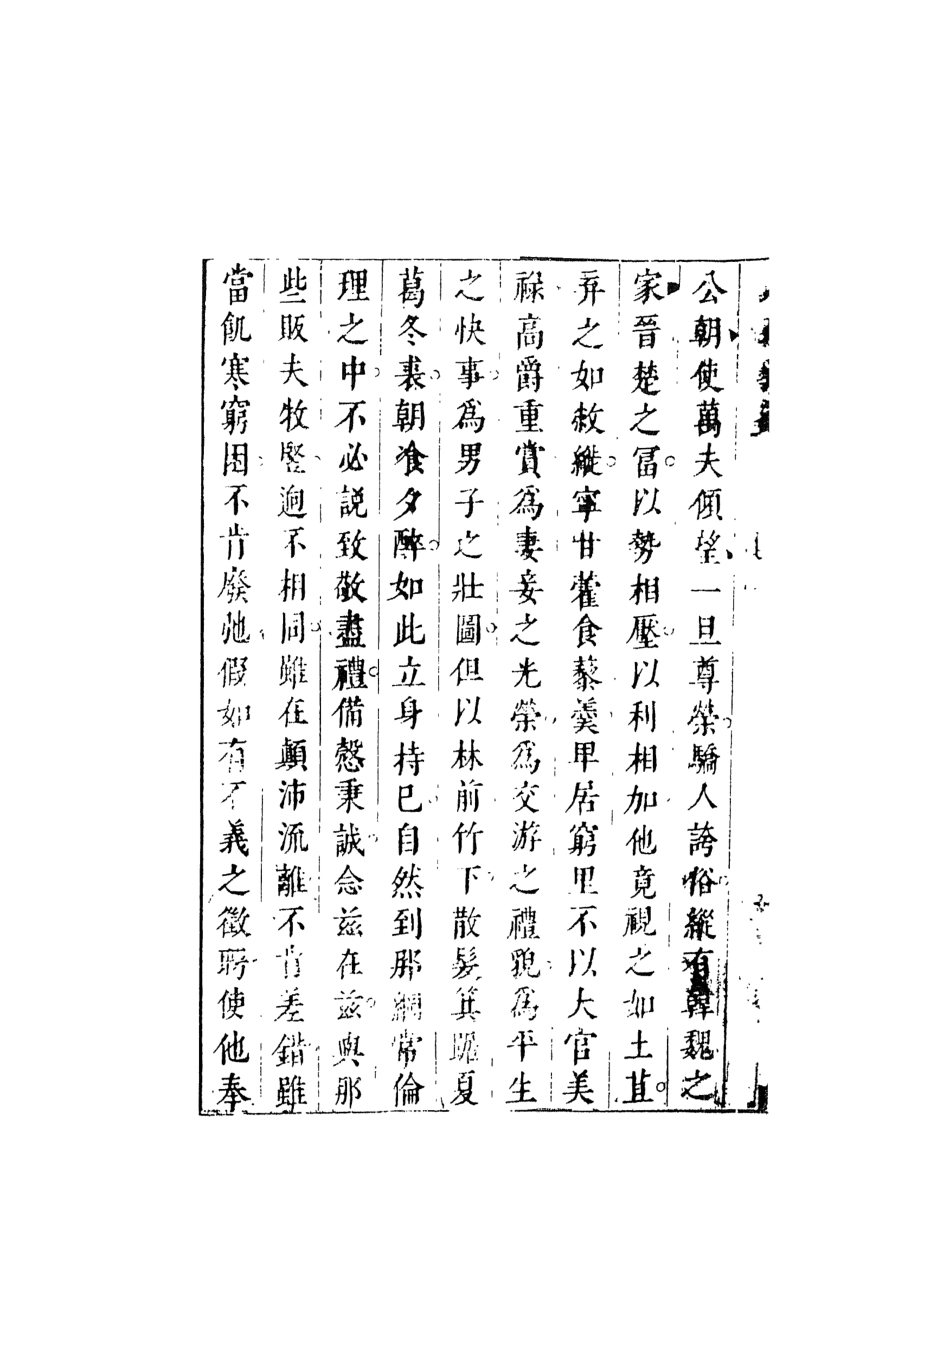 公朝使萬夫傾望一旦尊榮驕人誇俗縱有韓魏之
家晉楚之冨以勢相壓以利相加他竟視之如土苴
弃之如敝蹝寧甘藿食藜羹卑居窮里不以大官美
祿高爵重賞為妻妾之光榮為交游之禮貌為平生
之快事為男子之壯圖但以林前竹下散髮箕踞夏
葛冬裘朝飡夕醉如此立身持已自然到那綱常倫
理之中不必説致敬盡禮備慤秉誠念茲在茲與那
些販夫牧豎迥不相同雖在顛沛流離不肯差錯雖
當飢寒窮困不肯廢弛假如有不義之徵聘使他奉